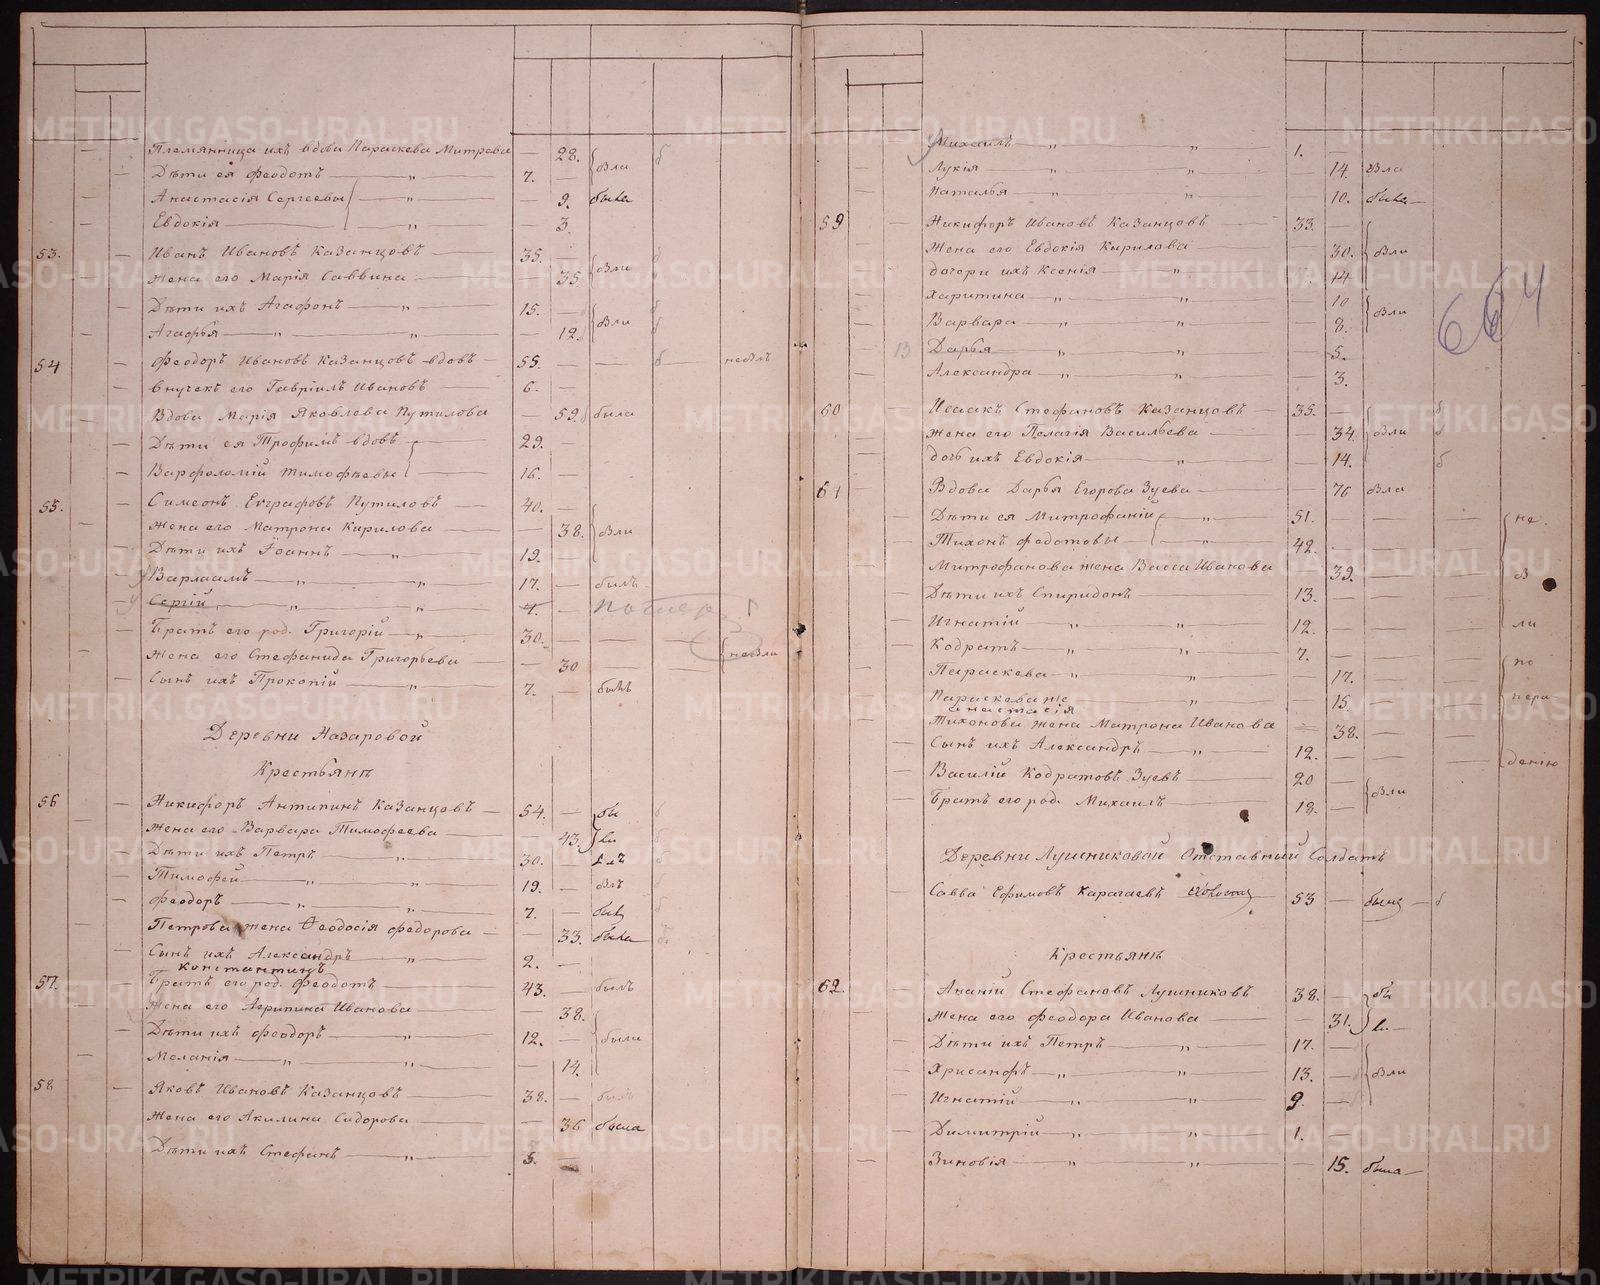 Племянница ихъ вдова Параскева Митрева — 28. Вла б
Дѣти ея Феодотъ — „ — 7. —
Анастасія Сергеевы — „ — 9. была
Евдокія — „ — 3.
53. Иванъ Ивановъ Казанцовъ — 35. Вли
Жена его Марія Саввина — 35
Дѣти ихъ Агафонъ — „ — 15. — Вли б
Агафья — „ — „ — 12. б
54 Феодоръ Ивановъ Казанцовъ вдовъ — 55. — — б невлъ
Внучекъ его Гавріилъ Ивановъ — 6. —
Вдова Марія Яковлева Путилова — 59. была
Дѣти ея Трофимъ вдовъ — 29. —
Варфоломій Тимофѣевы — 16. —
55. Симеонъ Евграфовъ Путиловъ — 40. —
Жена его Матрона Кирилова — 38. Вли
Дѣти ихъ Іоаннъ — „ — 19. —
у Варлаамъ — „ — „ — 17. — былъ
у Сергій — „ — „ — 4. — помер
Братъ его род. Григорій — „ — 30. — — —
Жена его Стефанида Григорьева — 30 — — невли
Сынъ ихъ Прокопій — „ — 7. — былъ
Деревни Назаровой
Крестьянѣ
56 Никифоръ Антипинъ Казанцовъ — 54. — бы б
Жена его Варвара Тимофеева — 43. ли
Дѣти ихъ Петръ — „ — 30. влъ
Тимофей — „ — „ — 19. — влъ
Феодоръ — „ — „ — 7. — б
Петрова жена Феодосія Федорова — 33. была б
Сынъ ихъ Александръ — „ — 2. —
Константинъ
57. Братъ его род. Феодотъ — 43. — былъ
Жена его Агрипина Иванова — 38.
Дѣти ихъ Феодоръ — „ — 12. — были
Меланія — „ — „ — 14.
58 Яковъ Ивановъ Казанцовъ — 38. — былъ
Жена его Акилина Сидорова — 36 была
Дѣти ихъ Стефанъ — „ — 5. —
у Михаилъ „ „ 1. —
Лукія „ „ — 14. Вла
Наталья „ „ — 10. была
59 Никифоръ Ивановъ Казанцовъ — 33. —
Жена его Евдокія Кирилова — 30. Вли
Дочери ихъ Ксенія — „ — 14
Харитина — „ „ — 10
Варвара — „ „ — 8. Вли
13 Дарья „ „ — 5.
Александра — „ „ — 3.
664
60 Исаакъ Стефановъ Казанцовъ — 35. — б
Жена его Пелагія Васильева — 34. Вли б
Дочь ихъ Евдокія — „ — 14. б
61 Вдова Дарья Егорова Зуева — 76 вла
Дѣти ея Митрофаній — „ — 51. — — — не.
Тихонъ Федотовы — „ — 42. —
Митрофанова жена Васса Иванова — 39. — — в
Дѣти ихъ Спиридонъ — 13. — — —
Игнатій — „ „ — 12. — — — ли
Кодратъ — „ „ — 7. — — —
Параскева — „ „ — 17. — — по
Параскева же „ — 15 — — нера
Анастасія
Тихонова жена Матрона Иванова — 38. — —
Сынъ ихъ Александръ — „ — 12. — — — денію
Василій Кодратовъ Зуевъ — 20 — Вли
Братъ его род. Михаилъ — 18. —
Деревни Лушниковой Отставный Солдатъ
Савва Ефимовъ Карагаевъ — 53 — — б
Крестьянѣ
62. Ананій Стефановъ Лушниковъ 38. — бы
Жена его Феодора Иванова — 31. ли
Дѣти ихъ Петръ — „ — 17. —
Хрисанфъ — „ „ — 13. — Вли
Игнатій — „ „ — 9. —
Димитрій — „ „ — 1. —
Зиновія — „ „ — 15. была
METRIKI.GASO-URAL.RU